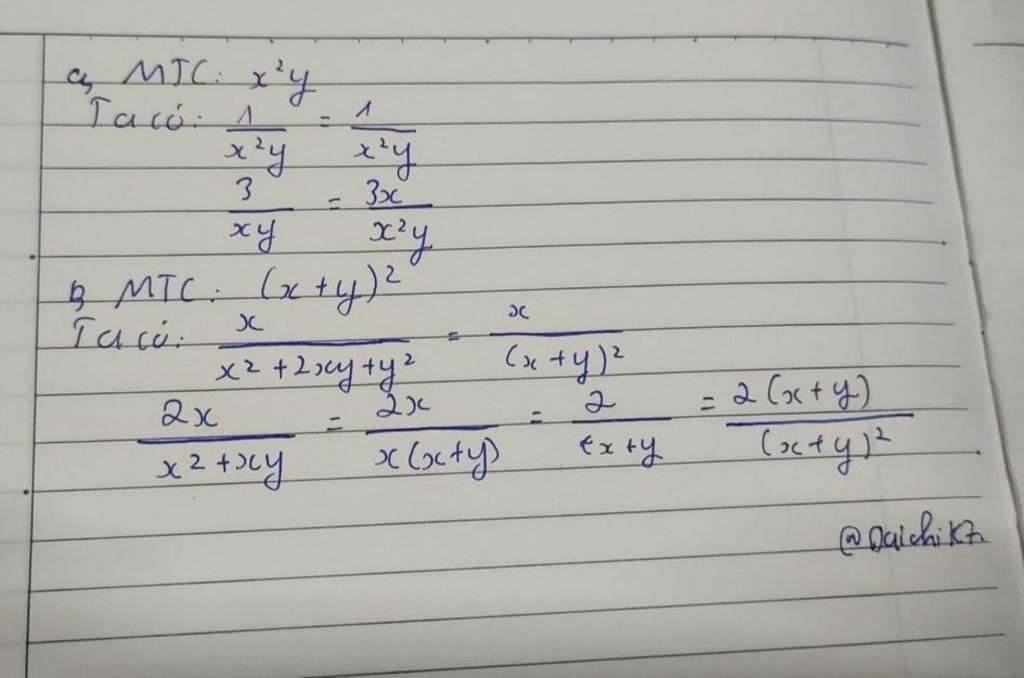 a, MTC: x²y
Ta có: 1/x²y = 1/x²y
3/xy = 3x/x²y
b, MTC: (x+y)²
Ta có: x/x²+2xy+y² = x/(x+y)²
2x/x²+xy = 2x/x(x+y) = 2/x+y = 2(x+y)/(x+y)²
@DaichiK7